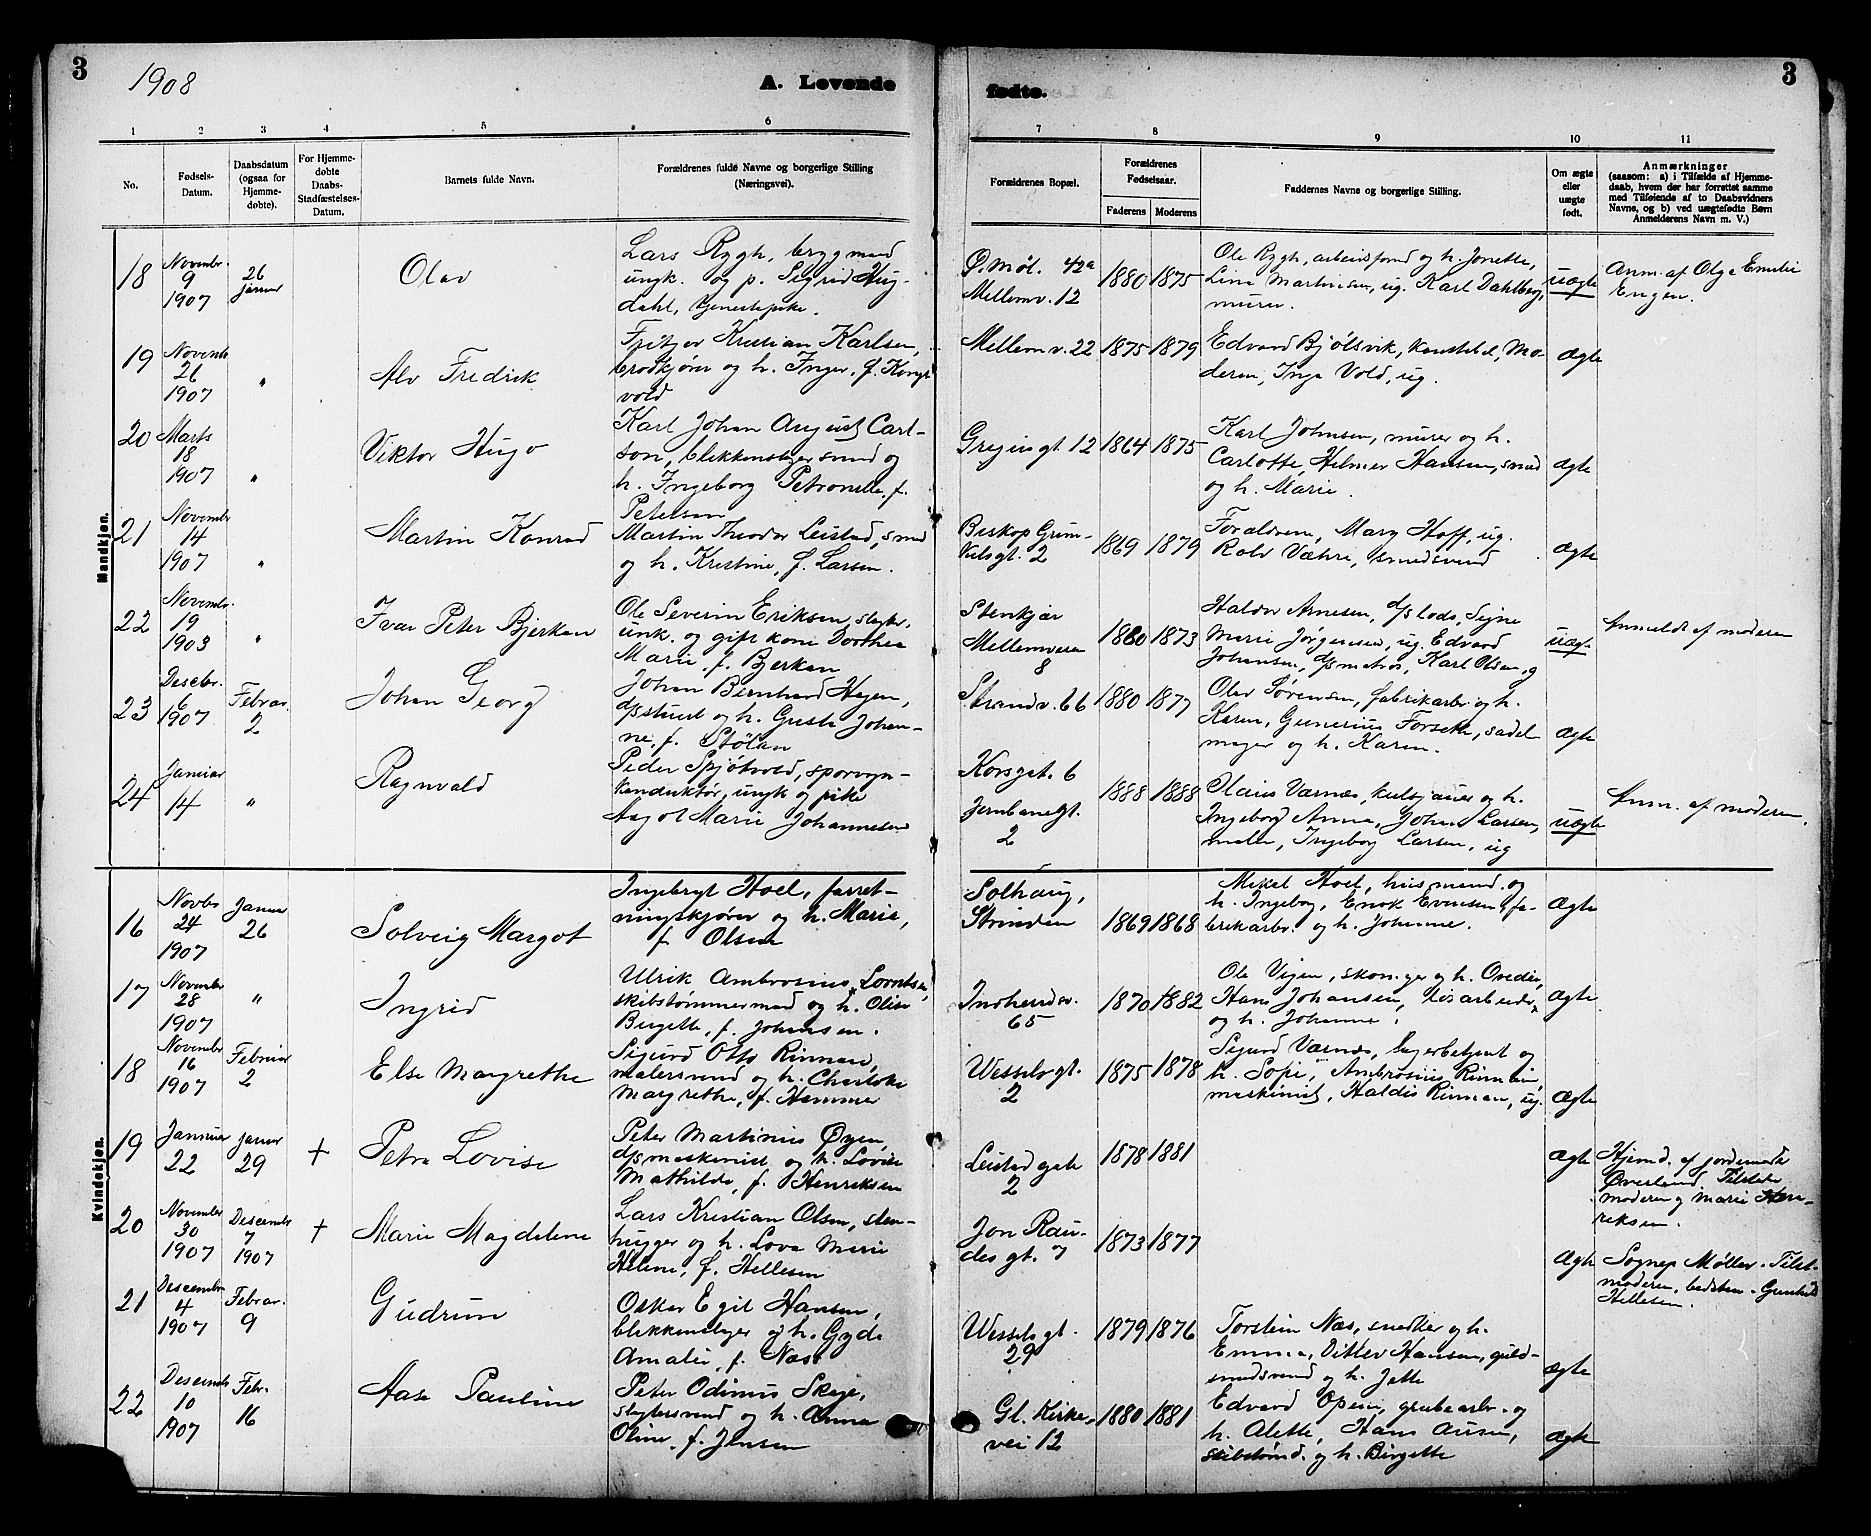 3
1908
A. Levende
fødte.
3
1
2
3
4
5
6
7
8
9
10
11
No.
Fødsels-
Datum.
Daabsdatum
(ogsaa for
Hjemme-
døbte).
For Hjemme-
døbte
Daabs-
Stadfæstelses-
Datum.
Barnets fulde Navn.
Forældrenes fulde Navne og borgerlige Stilling
(Næringsvei).
Forældrenes Bopæl.
Forældrenes
Fødselsaar.
Faderens
Moderens
Faddernes Navne og borgerlige Stilling.
Om ægte
eller
uægte
født.
Anmærkninger
(saasom: a) i Tilfælde af Hjemme-
daab, hvem der har forrettet samme
med Tilføiende af to Daabsvidners
Navne, og b) ved uægtefødte Børn
Anmelderens Navn m. V.)
Mandkjøn.
18
Novembr.
9
1907
26
Januar
Olav
Lars Rygh, brygmand
ungk. og p. Sigrid Hug-
dahl, tjenestepike.
Ø. Møl. 42a
Mellemv. 12
1880
1875
Ole Rygh, arbeidsformd og h. Jonette,
Lina Martinsen, ug. Karl Dahlberg,
murer.
uægte
Anm. af Olga Emilie
Engen.
19
Novemb
26
1907
"
Alv Fredrik
Fritjov Kristian Karlsen,
brødkjører og h. Inger, f. Kongs
vold
Mellemv. 22
1875
1879
Edvard Bjølsvik, konstabel, Mo-
deren, Inga Vold, ug.
ægte
20
Marts
18
1907
"
Viktor Hugo
Karl Johan August Carl-
son, blikkenslagersvend og
h. Ingeborg Petronelle, f.
Peterson
Gregusgt. 12
1864
1875
Karl Johnsen, murer og h.
Carlotte, Helmer Hansen, smed
og h. Marie.
ægte
21
Novembr
14
1907
"
Martin Konrad
Martin Theodor Leistad, smed
og h. Kristine, f. Larsen.
Biskop Grim-
kelsgt. 2
1869
1879
Forældrene, Mary Hoff, ug.
Rolv Væhre, smedsvend
ægte
22
Novembr.
19
1903
"
Ivar Peter Bjerkan
Ole Severin Eriksen, slagter,
unk. og gift kone Dorthea
Marie, f. Bjerkan
Stenkjær
Mellemveien
8
1880
1873
Haldor Arnesen, d/s lods, Signe
Marie Jørgensen, ug. Edvard
Johansen, d/s matros, Karl Olsen, og
uægt.
Anmeldt af moderen
23
Desebr.
6
1907
Februar.
2
Johan Georg
Johan Bernhard Hagen,
d/s stuert og h. Grete Johan-
ne, f. Stølan
Strandv. 66
1880
1877
Olav Sørensen, fabrikarb. og h.
Karen, Gunerius Forseth, sadel
mager og h. Karen.
ægte
24
Januar
14
"
Ragnvald
Peder Spjøtvold, sporvogn-
konduktør, ungk og pike
Aagot Marie Johannesen
Korsgt. 6
Jernbanegt.
2
1888
1888
Claus Værnæs, kulsjauer og h.
Ingeborg Anna, Johan Larsen,
maler, Ingeborg Larsen, ug
uægte
Anm. af moderen.
Kvindekjøn.
16
Novbr
24
1907
Januar
26
Solveig Margot
Ingebrigt Hoel, forret-
ningskjører og h. Marie,
f. Olsen
Solhaug,
Strinden
1869
1868
Mikal Hoel, husmand. og
h. Ingeborg, Enok Evensen, fa-
brikarbr. og h. Johanne.
ægte
17
Novembr
28
1907
"
Ingrid
Ulrik Ambrosius Lorntsen,
skibstømmermand og h. Oline
Birgitte, f. Johnsen.
Indherredsv.
65
1870
1882
Ole Vigen, skom.ger og h. Ovedie,
Hans Johansen, løsarbeider
og h. Johanne.
ægte
18
Novembr
16
1907
Februar
2
Else Margrethe
Sigurd Otto Rinnan,
malersvend og h. Charlotte
Margrethe, f. Hammer
Wesselsgt.
2
1875
1878
Sigurd Værnæs, lagerbetjent og
h. Sofie, Ambrosius Rinnan,
maskinist, Haldis Rinnan, ug.
ægte
19
Januar
22
Januar
29
+
Petra Lovise
Peter Martinius Øyen,
d/s maskinist og h. Lovise
Mathilde, f. Henriksen
Leistadgate
2
1878
1881
ægte
Hjemd. af jordemoder
Øverland. Tilstede
moderen og Marie Hen-
riksen.
20
November
30
1907
Desembr
7
1907
+
Marie Magdelene
Lars Kristian Olsen, sten-
hugger og h. Lova Marie
Helene, f. Hellesen
Jon Rau-
desgt. 7
1873
1877
ægte
Sognep Møller. Tilst.
moderen, bedstem. Gunhild
Hellesen.
21
Desembr
4
1907
Februar.
9
Gudrun
Oskar Egil Hansen,
blikkenslager og h. Gyda
Amalie, f. Næss
Wesselsgt.
29
1879
1876
Torstein Næs, snedker og h.
Emma, Ditlev Hansen, guld-
smedsvend og h. Jette
ægte
22
Desemb
10
1907
Febr.
16
Aase Pauline
Peter Odinus Skage,
slagtersvend og h. Anna
Oline, f. Jensen
Gl. Kirke-
vei 12
1880
1881
Edvard Opem, grubearb. og
h. Alette, Hans Ausen,
skibstømd. og h. Birgitte
ægte